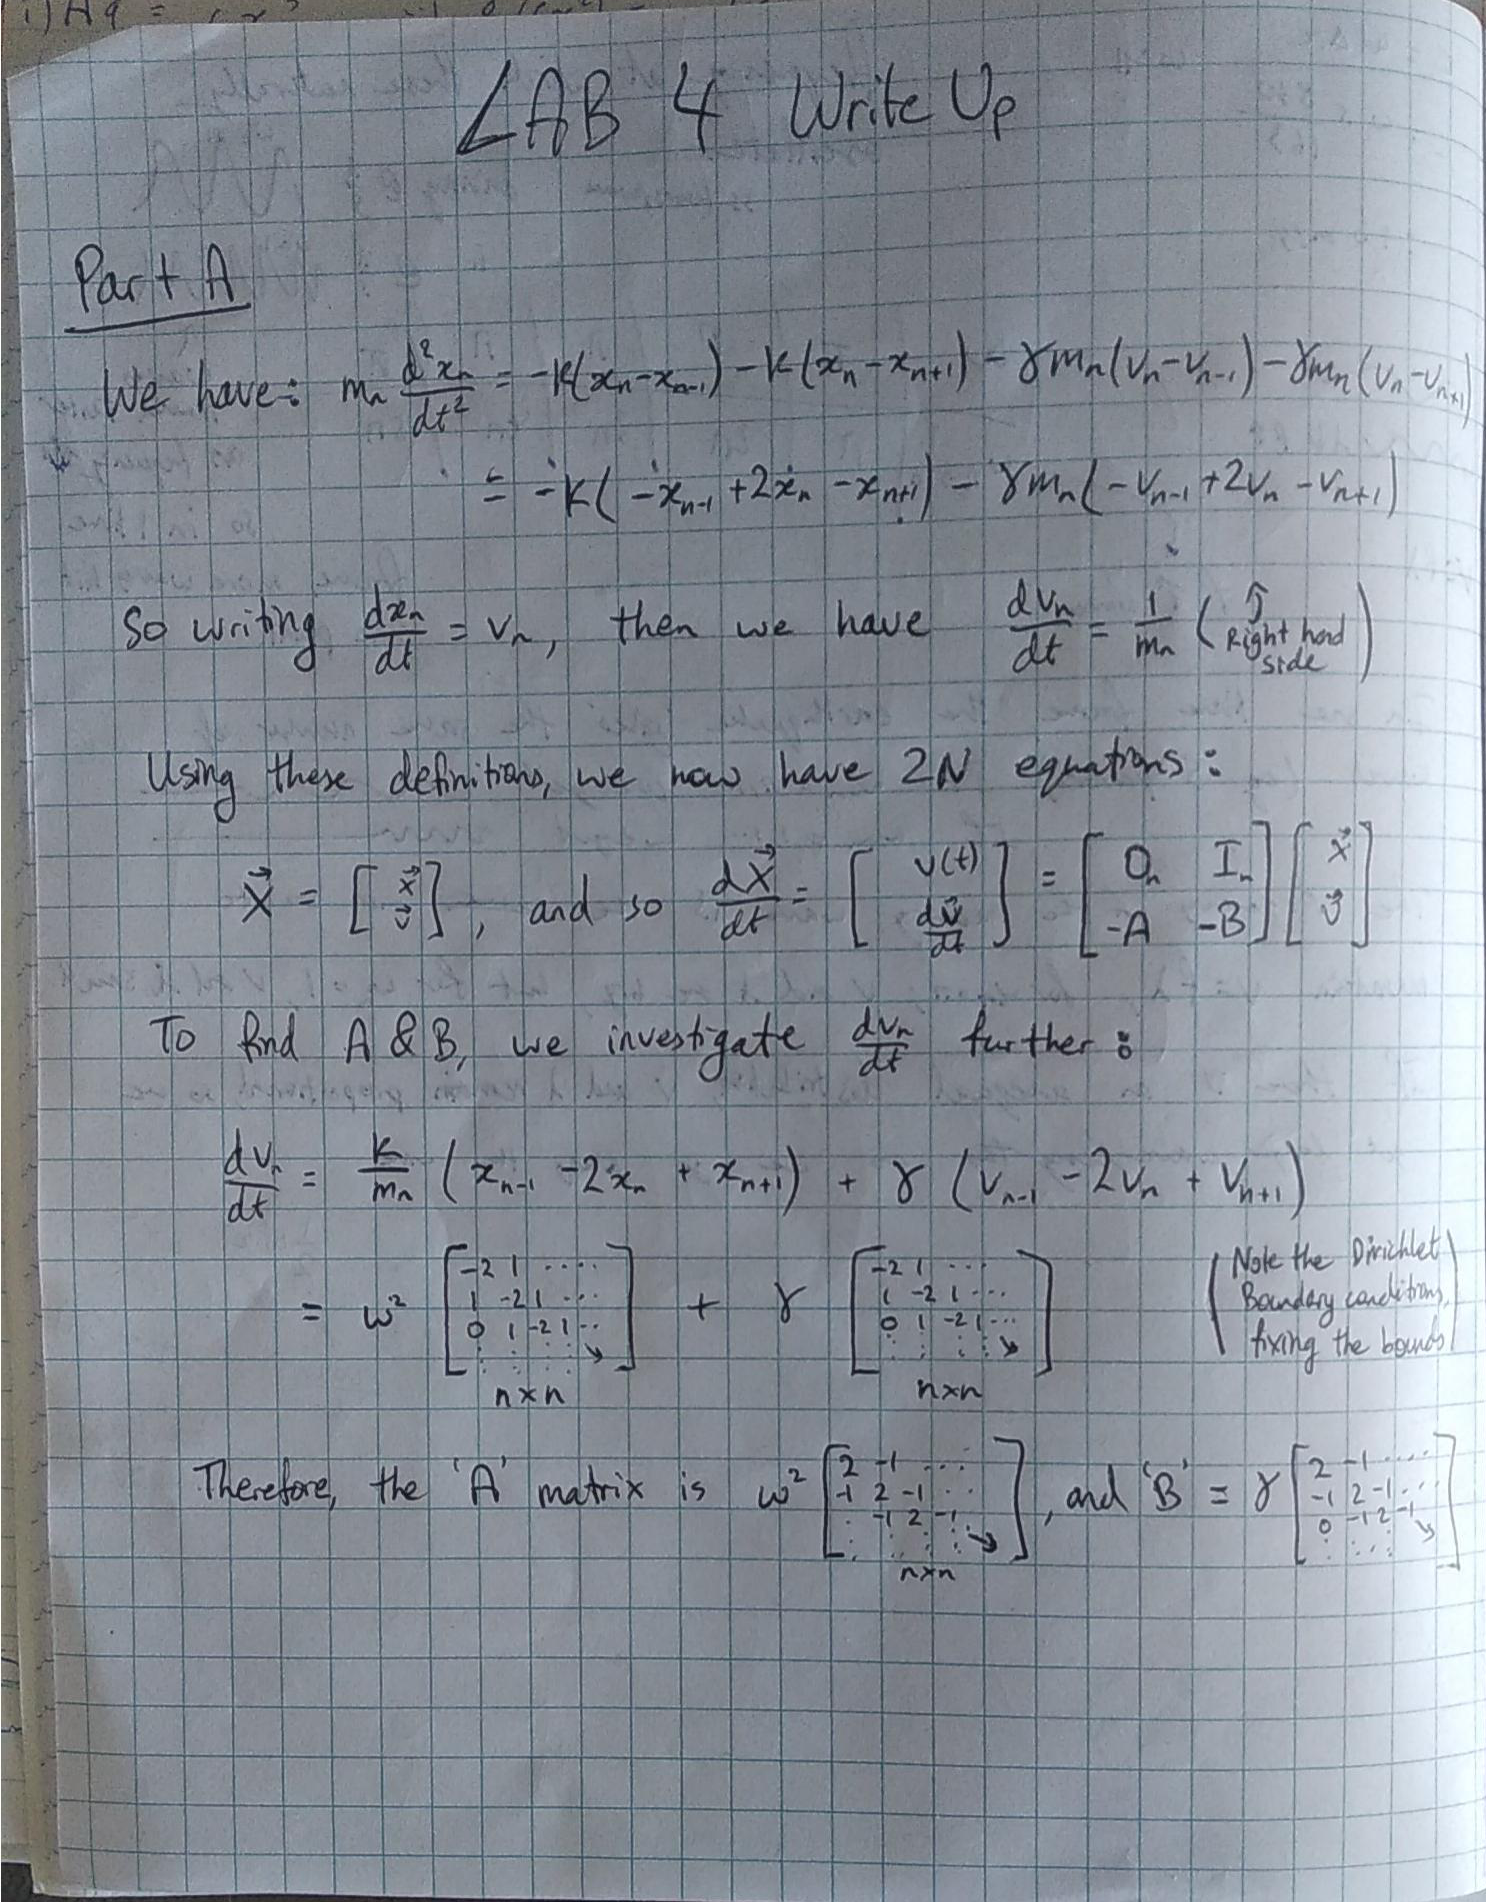 LAB 4 Write Up
Part A
We have: mₙ d²xₙ/dt² = -K(xₙ-xₙ₋₁) - K(xₙ-xₙ₊₁) - γmₙ(vₙ-vₙ₋₁) - γmₙ(vₙ-vₙ₊₁)
= -K(-xₙ₋₁ +2xₙ -xₙ₊₁) - γmₙ(-vₙ₋₁ +2vₙ -vₙ₊₁)
So writing dxₙ/dt = vₙ, then we have dvₙ/dt = 1/mₙ (↑ Right hand side)
Using these definitions, we now have 2N equations:
X⃗ = [x⃗ ; v⃗], and so dX⃗/dt = [v(t) ; dv⃗/dt] = [Oₙ Iₙ ; -A -B] [x⃗ ; v⃗]
To find A & B, we investigate dvₙ/dt further:
dvₙ/dt = K/mₙ (xₙ₋₁ -2xₙ + xₙ₊₁) + γ (vₙ₋₁ -2vₙ + vₙ₊₁)
= ω² [-2 1 .... ; 1 -2 1 ... ; 0 1 -2 1 .. ; : : : : ↘] n×n + γ [-2 1 ... ; 1 -2 1 ... ; 0 1 -2 1 ... ; : : : : ↘] n×n (Note the Dirichlet Boundary conditions, fixing the bounds)
Therefore, the 'A' matrix is ω² [2 -1 ... ; -1 2 -1 .. ; . -1 2 -1 ; : : : : ↘] n×n, and 'B' = γ [2 -1 .... ; -1 2 -1 ... ; 0 -1 2 -1 ; : : : ↘]